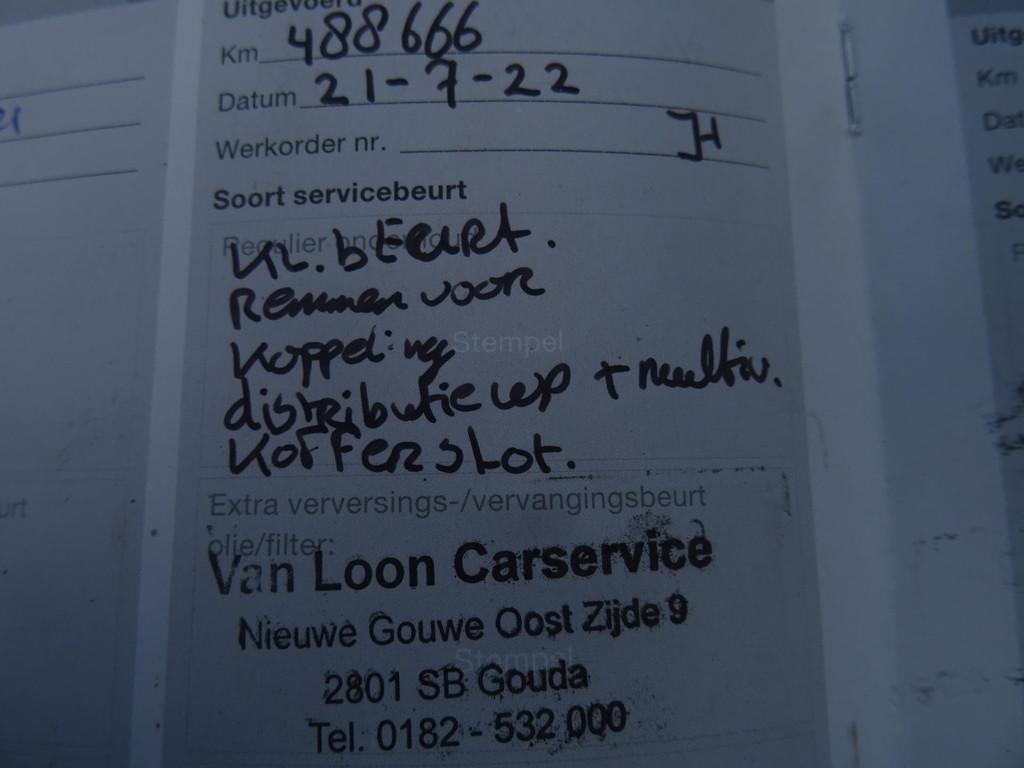 Uitgevoerd
Km 488666
Datum 21-7-22
Werkorder nr. JH
Soort servicebeurt
Regulier
KL. bEURT.
Remmen voor
Stempel
Koppeling
distributie wp + multiv.
KoffERsLot.
Extra verversings-/vervangingsbeurt
olie/filter:
Van Loon Carservice
Nieuwe Gouwe Oost Zijde 9
Stempel
2801 SB Gouda
Tel. 0182 - 532 000
urt
Uitg
Km
Dat
We
So